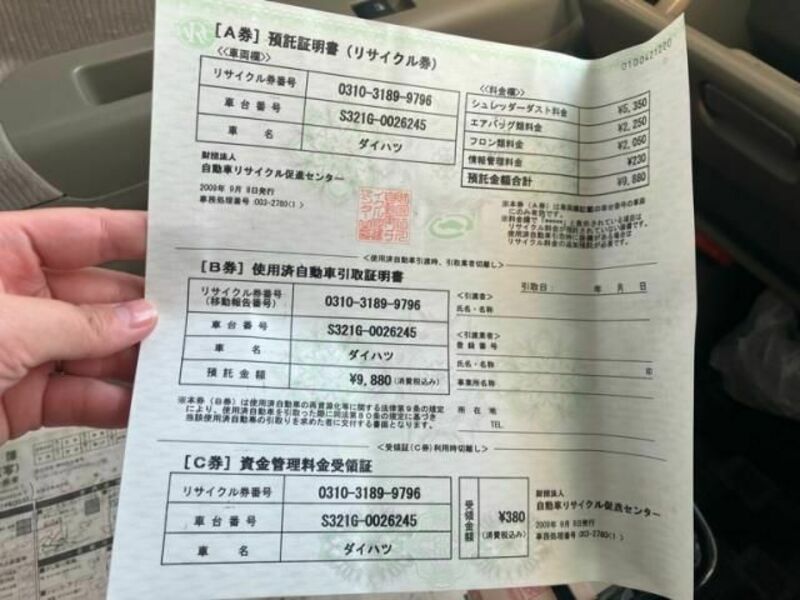 01D0421220
[A券] 預託証明書 (リサイクル券)
<<車両欄>>
リサイクル券番号 0310-3189-9796
車台番号 S321G-0026245
車名 ダイハツ
<<料金欄>>
シュレッダーダスト料金 ¥5,350
エアバッグ類料金 ¥2,250
フロン類料金 ¥2,050
情報管理料金 ¥230
預託金額合計 ¥9,880
財団法人
自動車リサイクル促進センター
2009年 9月 8日発行
事務処理番号:003-2780( )
※本券(A券)は車両欄記載の車台番号の車両
にのみ有効です。
<使用済自動車引渡時、引取業者切離し>
[B券] 使用済自動車引取証明書
引取日: 年 月 日
リサイクル券番号
(移動報告番号) 0310-3189-9796
車台番号 S321G-0026245
車名 ダイハツ
預託金額 ¥9,880 (消費税込み)
<引渡者>
氏名・名称
<引取業者>
登録番号
氏名・名称 印
事業所名称
所在地
TEL
※本券(B券)は使用済自動車の再資源化等に関する法律第9条の規定
により、使用済自動車を引取った際に同法第80条の規定に基づき
当該使用済自動車の引取りを求めた者に交付する書面となります。
<受領証(C券)利用時切離し>
[C券] 資金管理料金受領証
リサイクル券番号 0310-3189-9796
車台番号 S321G-0026245
車名 ダイハツ
受領金額 ¥380
(消費税込み)
財団法人
自動車リサイクル促進センター
2009年 9月 8日発行
事務処理番号:003-2780( )